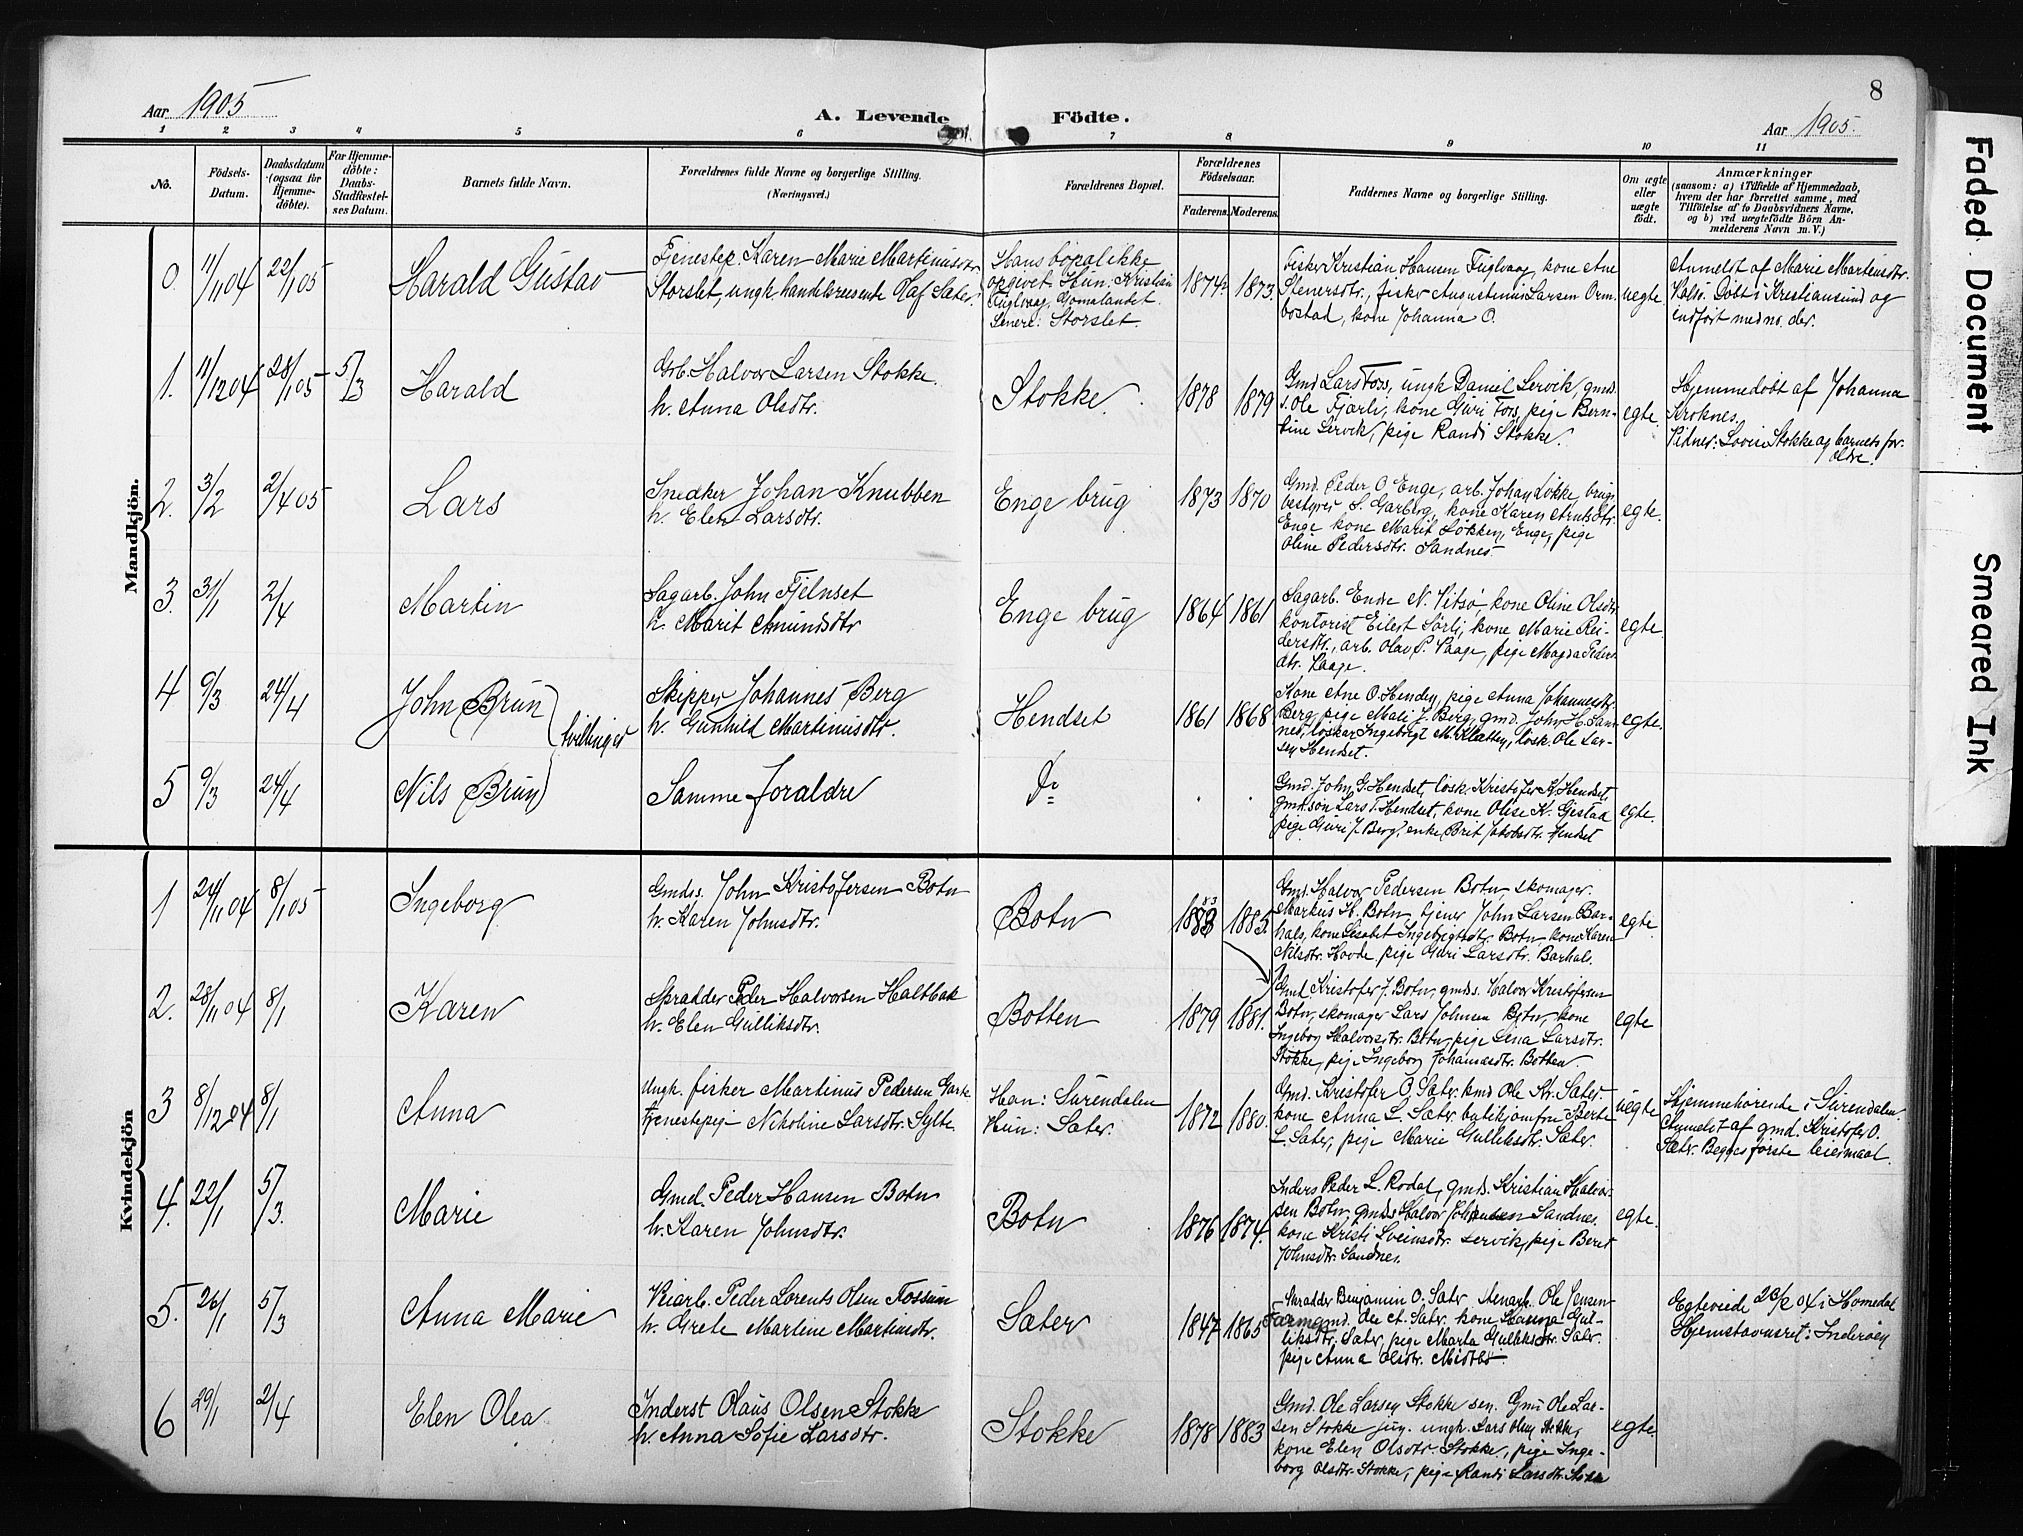 8
Aar 1905
A. Levende Födte.
Aar 1905.
1 2 3 4 5 6 7 8 9 10 11
No.
Födsels-
Datum.
Daabsdatum
(ogsaa for
Hjemme-
döbte).
For Hjemme-
döbte:
Daabs-
Stadfæstel-
ses Datum.
Barnets fulde Navn.
Forældrenes fulde Navne og borgerlige Stilling.
(Næringsvei.)
Forældrenes Bopæl.
Forældrenes
Födselsaar.
Faderens. Moderens.
Faddernes Navne og borgerlige Stilling.
Om ægte
eller
uægte
födt.
Anmærkninger
(saasom: a) i Tilfælde af Hjemmedaab,
hvem der har forrettet samme, med
Tilföielse af to Daabsvidners Navne,
og b) ved uægtefödte Börn An-
melderens Navn m. V.)
Mandkjön.
0. 11/11 04 22/1 05
Harald Gustav
Tjenestep. Karen Marie Martinusdtr.
Storslet, ungk. handelsreisende Olaf Sæter.
Hans bopæl ikke
opgivet. Hun: Kristian
Fuglvaag, Gomalandet.
Senere: Storslet.
1874 1873.
Fisker Kristian Hansen Fuglvaag, kone Ane
Stenersdtr., fisker Augustinus Larsen Orm-
bostad, kone Johanna O.
uegte
Anmeldt af Marie Martinsdtr.
Valsø. Døbt i Kristiansund og
indført med no. der.
1. 11/12 04 28/1 05 5/3
Harald
Grb. Halvor Larsen Stokke.
h. Anna Olsdtr.
Stokke.
1878 1879
Gmd Lars Foss, ungk Daniel Servik, gmd.
s. Ole Fjærli, kone Guri Foss, pige Bern-
tine Servik, pige Randi Stokke.
egte
Hjemmedøbt af Johanna
Kroknes.
Vidner: Lovise Stokke og barnets for-
ældre.
2. 3/2 2/4 05
Lars
Snedker Johan Knubben
h. Elen Larsdtr.
Enge brug
1873 1870
Gmd. Peder O Enge, arb. Johan Løkke, brugs
bestyrer S. Garberg, kone Karen Arntsdtr.
Enge kone Marit Løkken, Enge, pige
Oline Pedersdtr. Sandnes
egte.
3. 31/1 2/4
Martin
Sagarb. John Fjelnset
h. Marit Amundsdtr
Enge brug
1864 1861
Sagarb. Endre N. Vitsø, kone Oline Olsdtr,
kontorist Eilert Sørli, kone Marie Rei-
dersdtr., arb. Olav P. Vaage, pige Magda Peders
dtr. Vaage.
egte
4 9/3 24/4
John (Brun)
tvillinger
Skipper Johannes Berg
h. Gunhild Martinusdtr.
Hendset
1861 1868
Kone Ane O. Henden, pige Anna Johannesdtr.
Berg, pige Mali J. Berg, gmd. John H. Sand-
nes, løskar Ingebrigt M. Kletten, løsk. Ole Lar-
sen Hendset.
egte.
5 9/3 24/4
Nils (Brun)
Samme forældre
Do
Gmd. John G. Hendset, løsk. Kristofer K. Hendset,
gmdsøn Lars T. Hendset, kone Olise K. Gjestad
pige Guri J. Berg, enke Brit Jakobsdtr. Hendset
egte.
Kvindekjön
1 24/11 04 8/1 05
Ingeborg
Gmds. John Kristofersen Botn
h. Karen Johnsdtr.
Botn
1883 83 1885.
Gmd. Halvor Pedersen Botn, skomager
Markus H. Botn, tjener John Larsen Bar-
hals, kone Lisabet Ingebrigtsdtr. Botn kone Karen
Nilsdtr. Hovde pige Guri Larsdtr. Barhals.
egte.
2. 28/11 04 8/1
Karen
Skrædder Peder Halvorsen Haltbak
h. Elen Gulliksdtr.
Botten
1879 1881.
Gmd. Kristofer J. Botn, gmds. Halvor Kristofersen
Botn, skomager Lars Johnsen Botn, kone
Ingeborg Halvorsdtr. Botn pige Lena Larsdtr.
Stokke, pige Ingeborg Johannesdtr. Botten.
egte
3 8/12 04 8/1
Anna
Ungk. fisker Martinus Pedersen
tjenestepige Nikoline Larsdtr. Sylte
Han: Surendalen
Hun: Sæter.
1872 1880.
Gmd. Kristofer O. Sæter. kmd Ole Kr. Sæter.
kone Anna L. Sæter butikjomfru Berte
L. Sæter, pige Marie Gulliksdtr. Sæter.
uegte
Hjemmehørende i Surendalen.
Anmeldt af gmd. Kristofer O.
Sæter. Begges første leiermaal.
4. 22/1 5/3.
Marie
Gmd. Peder Hansen Botn
h. Karen Johnsdtr.
Botn
1876 1874.
Inders Peder L. Rodal, gmds. Kristian Halvor-
sen Botn, gmds Halvor Johnsen Sandnes.
kone Kristi Sveinsdtr. Servik, pige Beret
Johnsdtr. Sandnes.
egte.
5. 26/1 5/3
Anna Marie
Veiarb. Peder Lorents Olsen Fossum
h. Grete Martine Martinsdtr.
Sæter
1847 1865
Skrædder Benjamin O. Sæter Stenarb. Ole Jensen
Farmen gmd. Ole A. Sæter. kone Hanna Gul-
liksdtr. Sæter, pige Marta Gulliksdtr. Sæter.
pige Anna Olsdtr. Midtbø.
Egteviede 26/2 04 i Homedal
Hjemstavnsret: Inderøen
6 29/1 2/4
Elen Olea
Inderst Olaus Olsen Stokke
h. Anna Sofie Larsdtr.
Stokke
1878 1883
Gmd. Ole Larsen Stokke sen. Gmd Ole Lar-
sen Stokke jun. ungk. Lars Olsen Stokke,
kone Elen Olsdtr. Stokke, pige Inge-
borg Olsdtr. Stokke, pige Randi Larsdtr. Stokke
egte
Faded Document
Smeared Ink